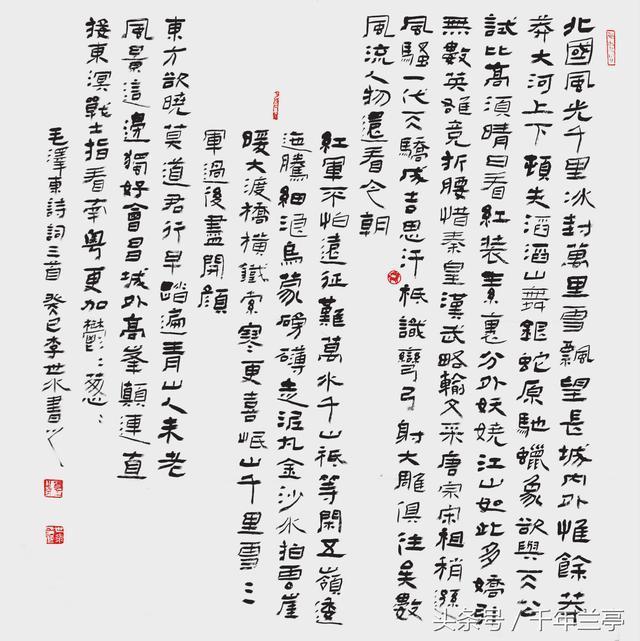 北國風光千里冰封萬里雪飄望長城內外惟餘莽
莽大河上下頓失滔滔山舞銀蛇原馳蠟象欲與天公
試比高須晴日看紅裝素裹分外妖嬈江山如此多嬌引
無數英雄竟折腰惜秦皇漢武略輸文采唐宗宋祖稍遜
風騷一代天驕成吉思汗祇識彎弓射大雕俱往矣數
風流人物還看今朝
紅軍不怕遠征難萬水千山祇等閑五嶺逶
迤騰細浪烏蒙磅礴走泥丸金沙水拍雲崖
暖大渡橋橫鐵索寒更喜岷山千里雪三
軍過後盡開顏
東方欲曉莫道君行早踏遍青山人未老
風景這邊獨好會昌城外高峯顛連直
接東溟戰士指看南粵更加鬱:蔥:
毛澤東詩詞三首 癸巳李世水書
头条号／千年兰亭